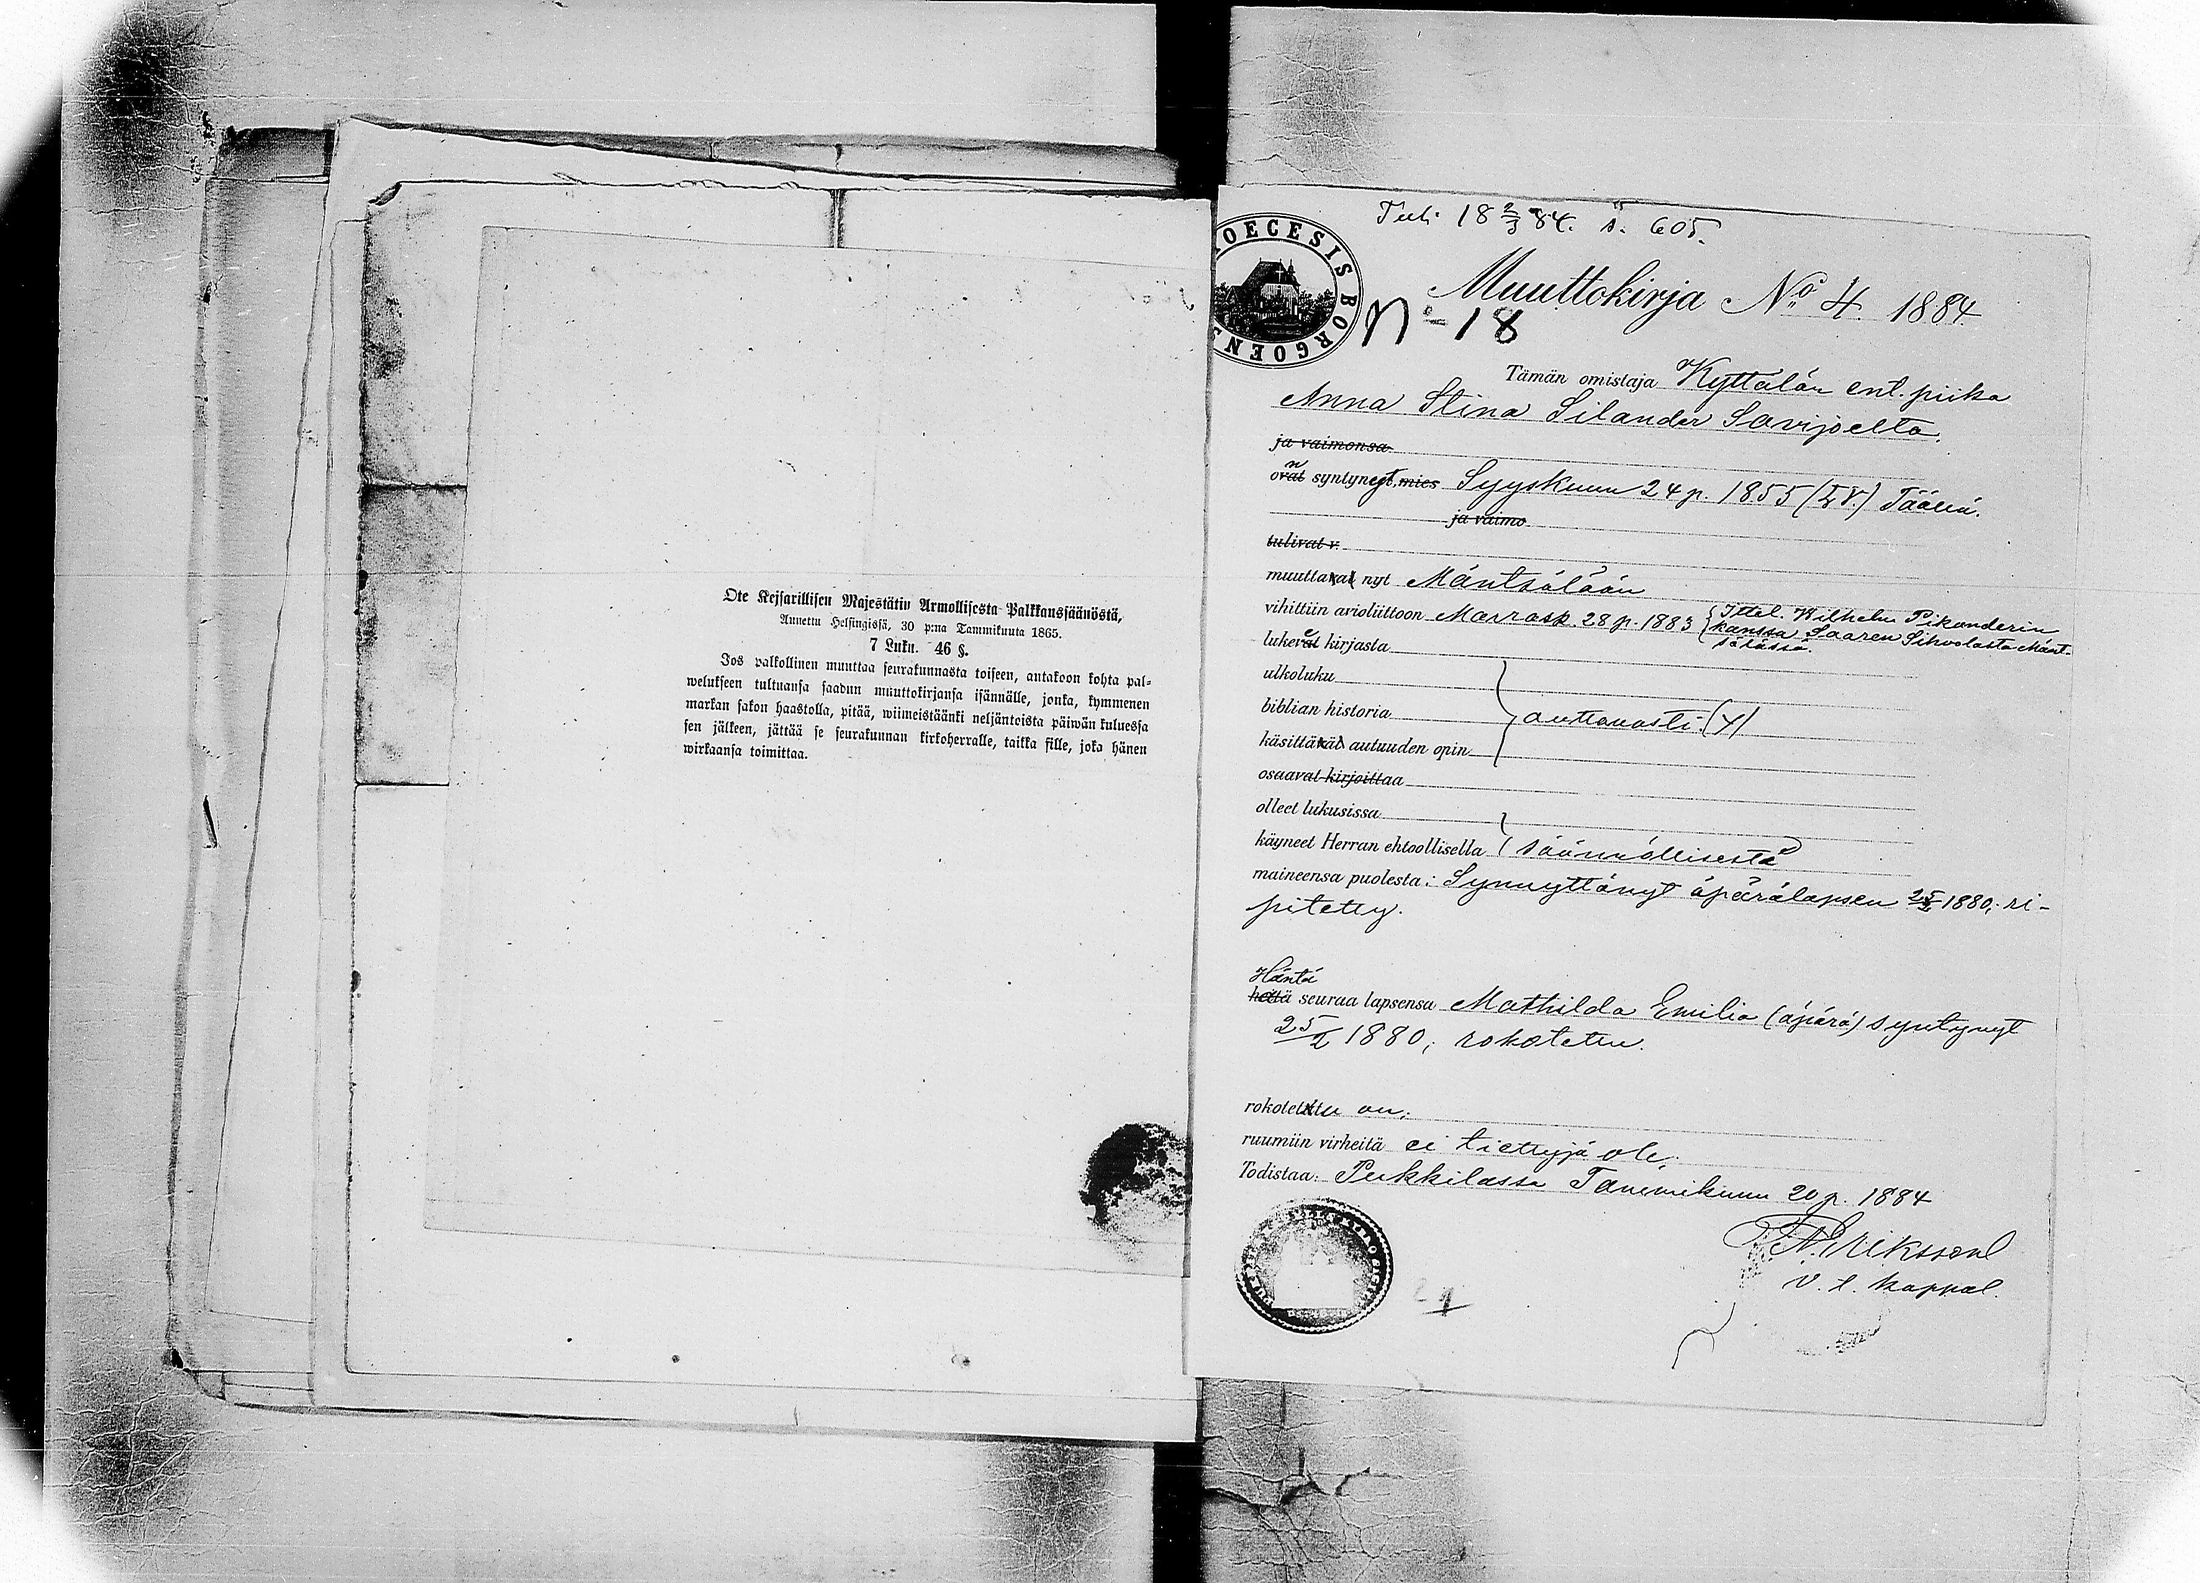 Ote Keisarillisen Majestätin Armollisesta Palkkaussäänöstä,
Annettu Helsingissä, 30 p:na Tammikuuta 1865.
7 Luku. 46 §.
Jos palkollinen muuttaa seurakunnasta toiseen, antakoon kohta pal-
welukseen tultuansa saadun muuttokirjansa isännälle, jonka, kymmenen
markan sakon haastolla, pitää, wiimeistäänki neljäntoista päiwän kuluessa
sen jälkeen, jättää se seurakunnan kirkoherralle, taikka sille, joka hänen
wirkaansa toimittaa.
Tuli 18 2/3 84. s. 605.
OECESIS BORGOEN
Muuttokirja No 4. 1884
No 18
Tämän omistaja Kyttälän ent. piika
Anna Stina Silander Savijoelta.
ja vaimonsa
ovat n syntynyt, mies Syyskuun 24 p. 1855 (55.) Täällä.
ja vaimo
tulivat v.
muuttavat nyt Mäntsälään
vihittiin avioliittoon Marrask. 28 p. 1883 { Ittel. Wilhelm Pikanderin
kanssa Saaren Sihvolasta Mänt-
sälässä.
lukevat kirjasta
ulkoluku
biblian historia
käsittävät autuuden opin
auttavasti (x)
osaavat kirjoittaa
olleet lukusissa
käyneet Herran ehtoollisella säännöllisesti
maineensa puolesta: Synnyttänyt äpärälapsen 25/2 1880; ri-
pitetty.
Häntä
heitä seuraa lapsensa Mathilda Emilia (äpärä) syntynyt
25/2 1880; rokotettu.
rokotettu on;
ruumiin virheitä ei tiettyjä ole;
Todistaa: Pukkilassa Tammikuun 20 p. 1884
A. Eriksson
v. t. kappal.